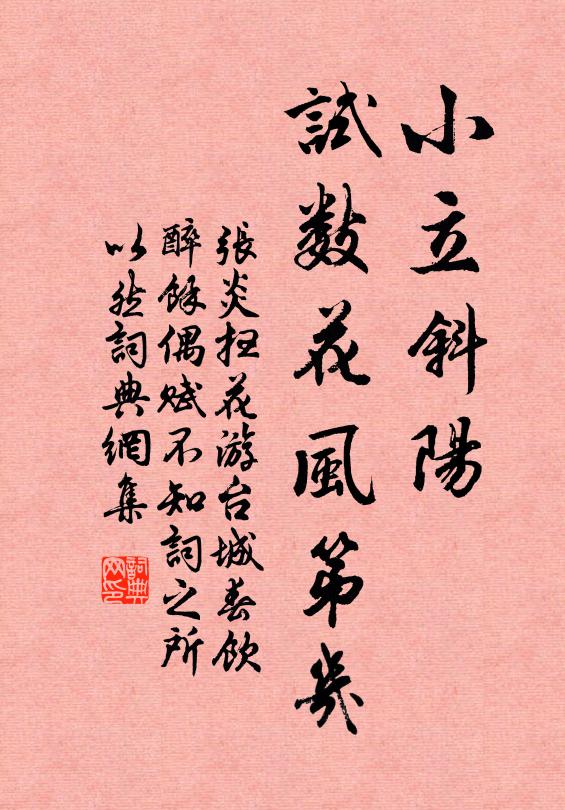 小立斜陽
試數花風第幾
張炎扫花游台城春飲
醉餘偶賦不知詞之所
以然詞典網集
詞典
网印